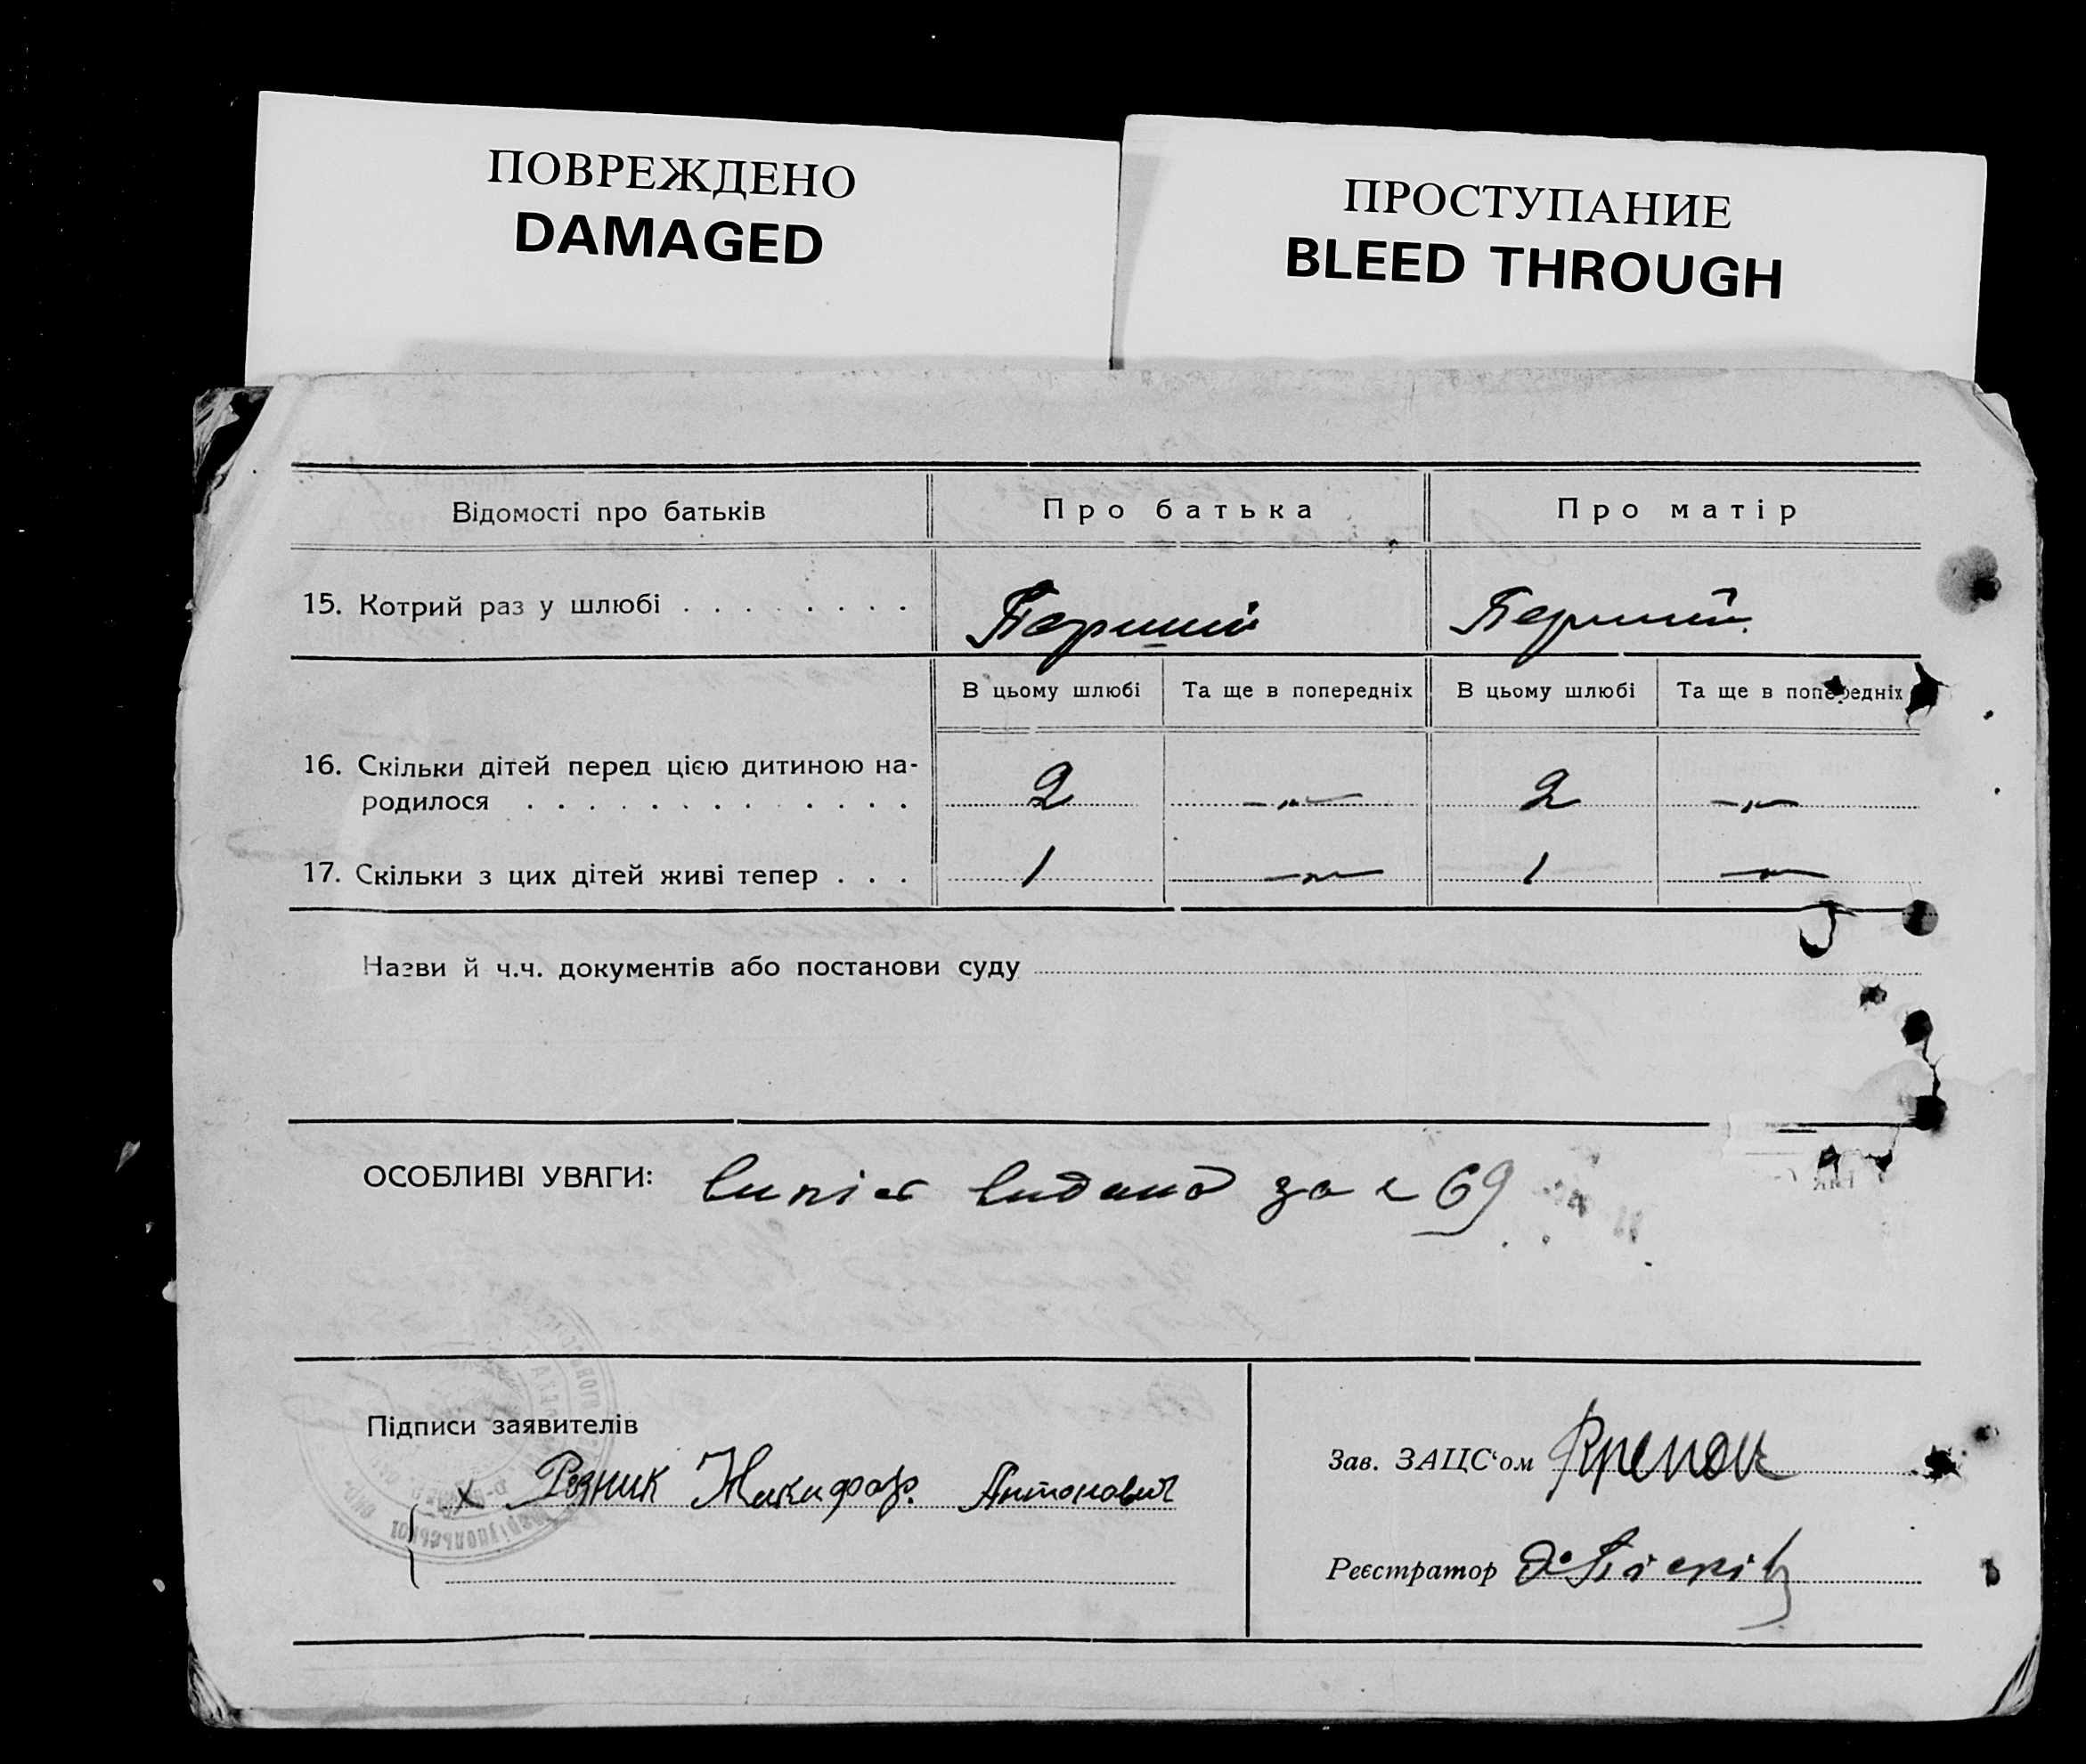 ПОВРЕЖДЕНО
DAMAGED
ПРОСТУПАНИЕ
BLEED THROUGH
Відомості про батьків Про батька Про матір
15. Котрий раз у шлюбі . . . . . . . . Перший Перший
В цьому шлюбі Та ще в попередніх В цьому шлюбі Та ще в попередніх
16. Скільки дітей перед цією дитиною на-
родилося . . . . . . . . . . . . . 2 —„— 2 —„—
17. Скільки з цих дітей живі тепер . . . 1 —„— 1 —„—
Назви й ч.ч. документів або постанови суду
ОСОБЛИВІ УВАГИ: випіс видано за 69
Підписи заявителів
х Резник Никифор. Антонович
Зав. ЗАЦС‘ом
Реєстратор